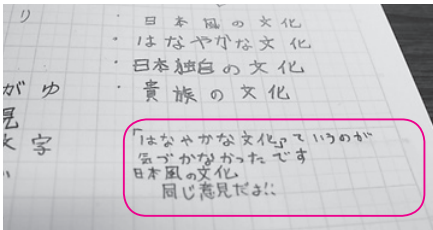 り
・日本風の文化
・はなやかな文化
・日本独自の文化
・貴族の文化
がゆ
見
文字
「はなやかな文化」っていうのが
気づかなかったです
日本風の文化
同じ意見だよ!!